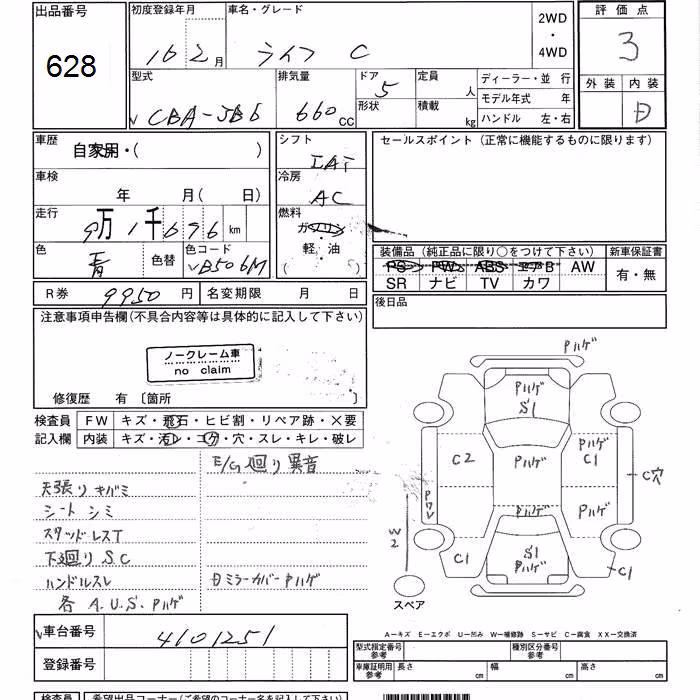 出品番号 初度登録年月 車名・グレード 2WD・4WD 評価点
628 16 2月 ライフ C 3
外装 内装
D
型式 排気量 ドア 定員 人 ディーラー・並 行
CBA-JB6 660cc 5 形状 積載 kg モデル年式 年
ハンドル 左・右
車歴 自家用・( ) シフト セールスポイント (正常に機能するものに限ります)
IAT
車検 年 月(日) 冷房 AC
走行 9万1千696km 燃料 ガソリン
軽・油
( )
色 青 色替 色コード B506M
装備品 (純正品に限り○をつけて下さい) 新車保証書
PS PW ABS エアB AW 有・無
SR ナビ TV カワ
R券 9950円 名変期限 月 日 後日品
注意事項申告欄(不具合内容等は具体的に記入して下さい)
ノークレーム車
no claim
修復歴 有 〔箇所 〕
検査員 FW キズ・飛石・ヒビ割・リペア跡・×要
記入欄 内装 キズ・汚レ・コゲ・穴・スレ・キレ・破レ
E/G廻り異音
天張りキバミ
シート シミ
スタッドレスT
下廻りS.C
ハンドルスレ 日ミラーカバーPハゲ
各 A.U.S.Pハゲ
Pハゲ
Pハゲ
S1
Pハゲ
C2 Pハゲ C1
C穴
Pワレ
Pハゲ Pハゲ
W2
C1 S1 C1
Pハゲ
スペア
A-キズ E-エクボ U-凹み W-補修跡 S-サビ C-腐食 XX-交換済
車台番号 4101251
型式指定番号 参考 種別区分番号 参考
登録番号 車庫証明用 参考 長さ 幅 高さ
cm cm cm
検査員 希望出品コーナー(ご希望のコーナー名を記入下さい)